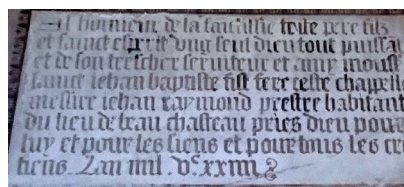 A honneur de la saincte toute pere filz
et sainct esperit ung seul dieu tout puissa
et de son trescher serviteur et amy mons
sainct iehan baptiste fist fere ceste chappelle
messire iehan raymond prestre habitant
du lieu de beau chasteau pries dieu pour
luy et pour les siens et pour tous les tre
Lan mil vc xxiiii